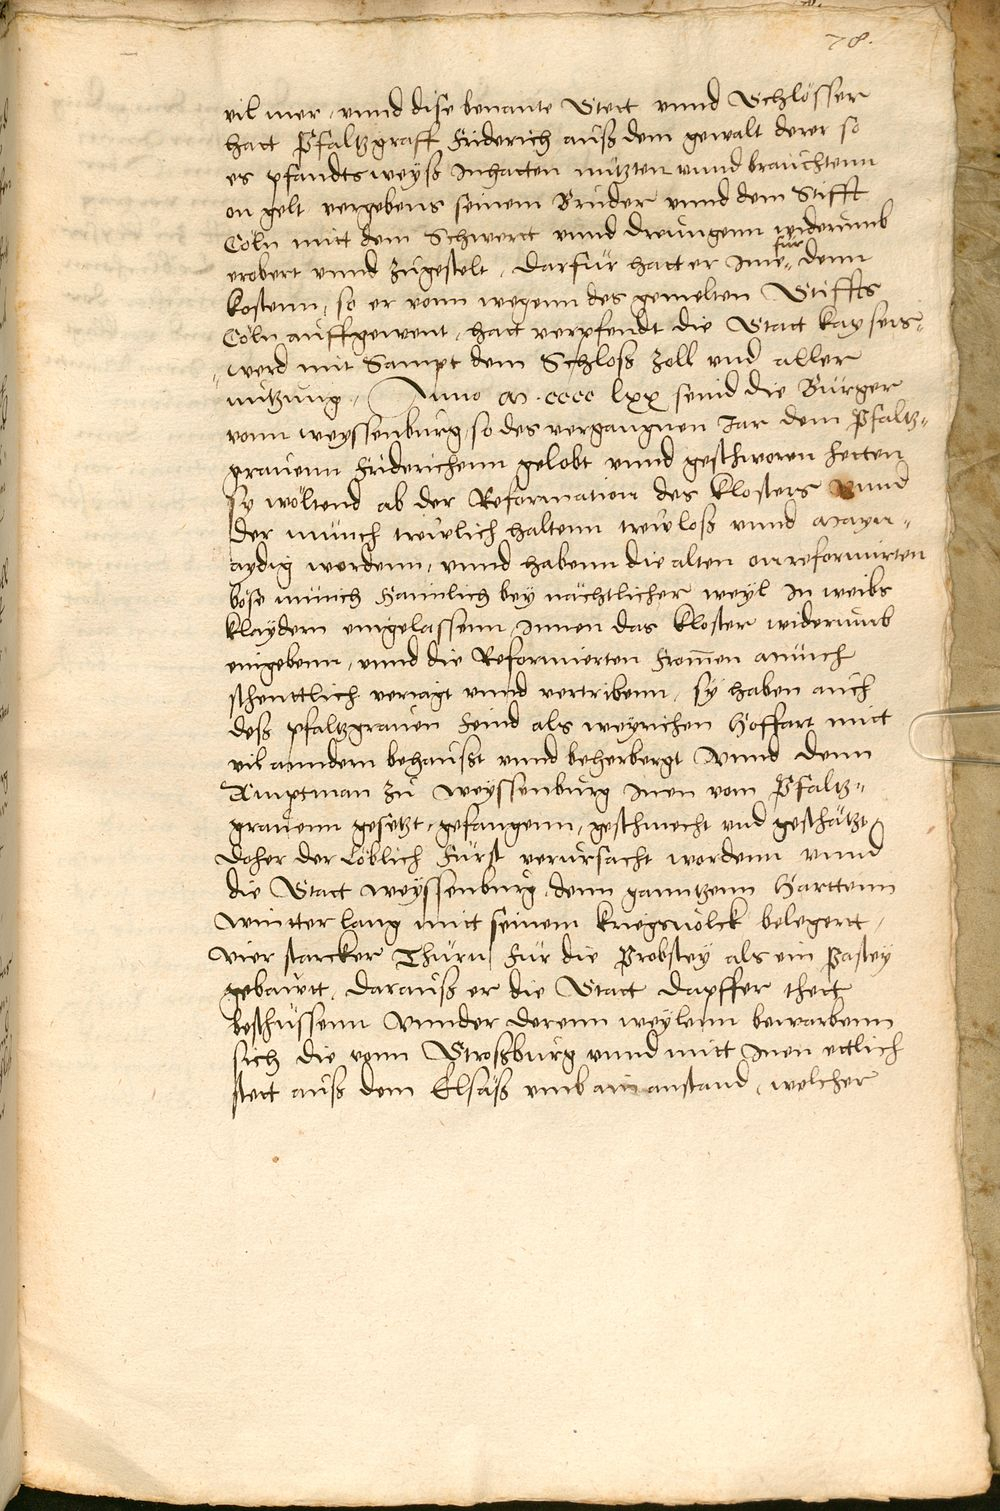 78.
vil mer, vnnd dise benante Stett vnnd Schlösser
hatt Pfaltzgraff Friderich auß dem gewalt derer so
es pfandts weyß Inhatten nutzten vnnd brauchtenn
on gelt vergebens seinem Bruder vnnd dem Stifft
Cöln mitt dem Schwertt vnnd dreungenn widerumb
erobert vnnd zugestelt, darfür hatt er Ime für denn
kostenn, so er vonn wegenn des gemelten Stiffts
Cöln auffgewent, hatt verpfendt die Statt kaysers=
=werd mit Sampt dem Schloß zoll vnd aller
nutzung, Anno M.cccc lxx seind die Burger
vonn weyssenburg, so des vergangnen Jar dem Pfaltz=
grauenn Friderichenn gelobt vnnd geschworen hetten
sy wöltend ob der Reformation des klosters vnnd
der münch trewlich haltenn trewloß vnnd mayn=
aydig wordenn, vnnd habenn die alten onreformirten
böse münch Haimlich bey nächtlicher weyl In weibs
klaydern eingelassenn, Innen das kloster widerumb
eingebenn, vnnd die Reformierten Fromen münch
schenttlich veriagt vnnd vertribenn, sy haben auch
deß pfaltzgrauen Feind als weyrichen Hoffart mitt
vil anndern behaußt vnnd beherbergt Vnnd denn
Amptman zu weyssenburg Inen vom Pfaltz=
grauenn gesetzt, gefangenn, geschmecht vnd geschätzt,
doher der Löblich Fürst verursacht wordenn vnnd
die Statt weyssenburg, denn ganntzenn Harttenn
wintter lang mitt seinem kriegsuolck belegertt,
vier starcker Thurn Für die Probstey als ein Pastey
gebauett, darauß er die Statt dapffer thett
beschüssenn Vnnder derenn weylenn bewarbenn
sich die vonn Stroßburg vnnd mitt Inen ettlich
stett auß dem Elsäß vmb ain anstand, welcher